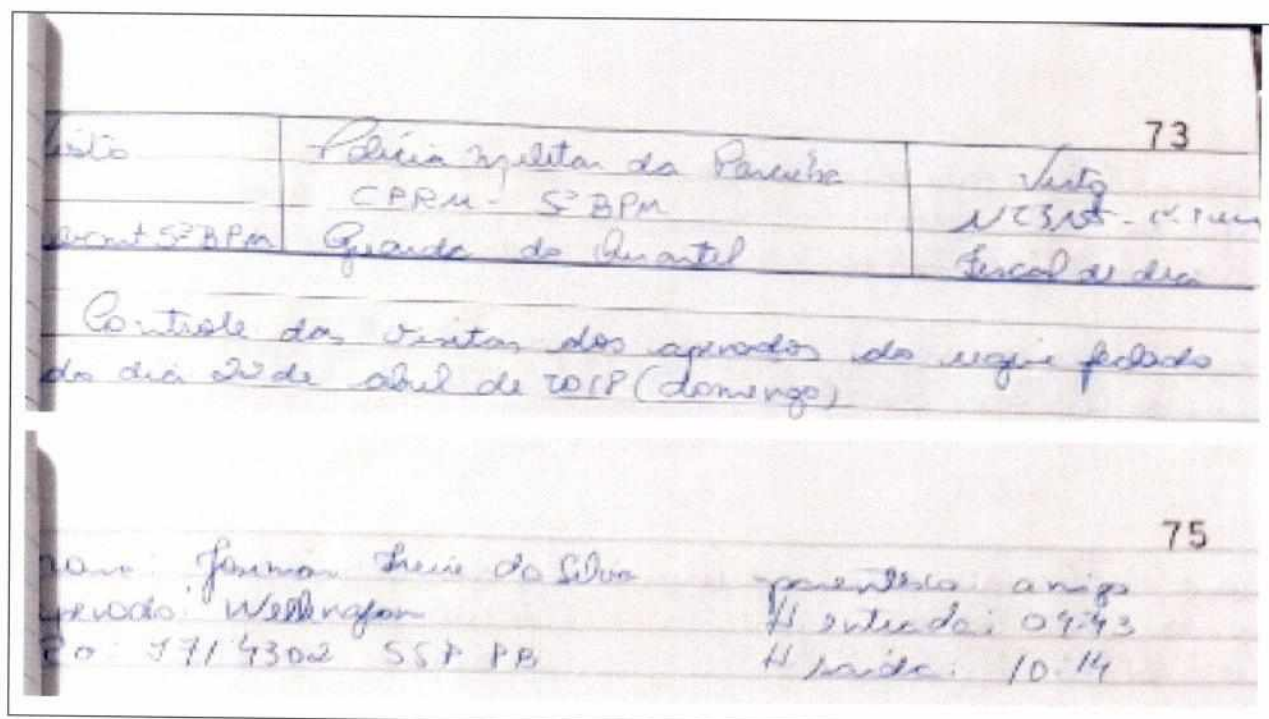 73
Visto
Polícia Militar da Paraíba
Visto
CPRM - 5º BPM
5º BPM
Guarda do Quartel
Fiscal de dia
Controle das visitas dos apenados do regime fechado
do dia 22 de abril de 2018 (domingo)
75
Nome: Josimar Freire da Silva parentesco: amigo
apenado: Wellington H entrada: 09:43
17/4302 SSP PB H saída: 10:14